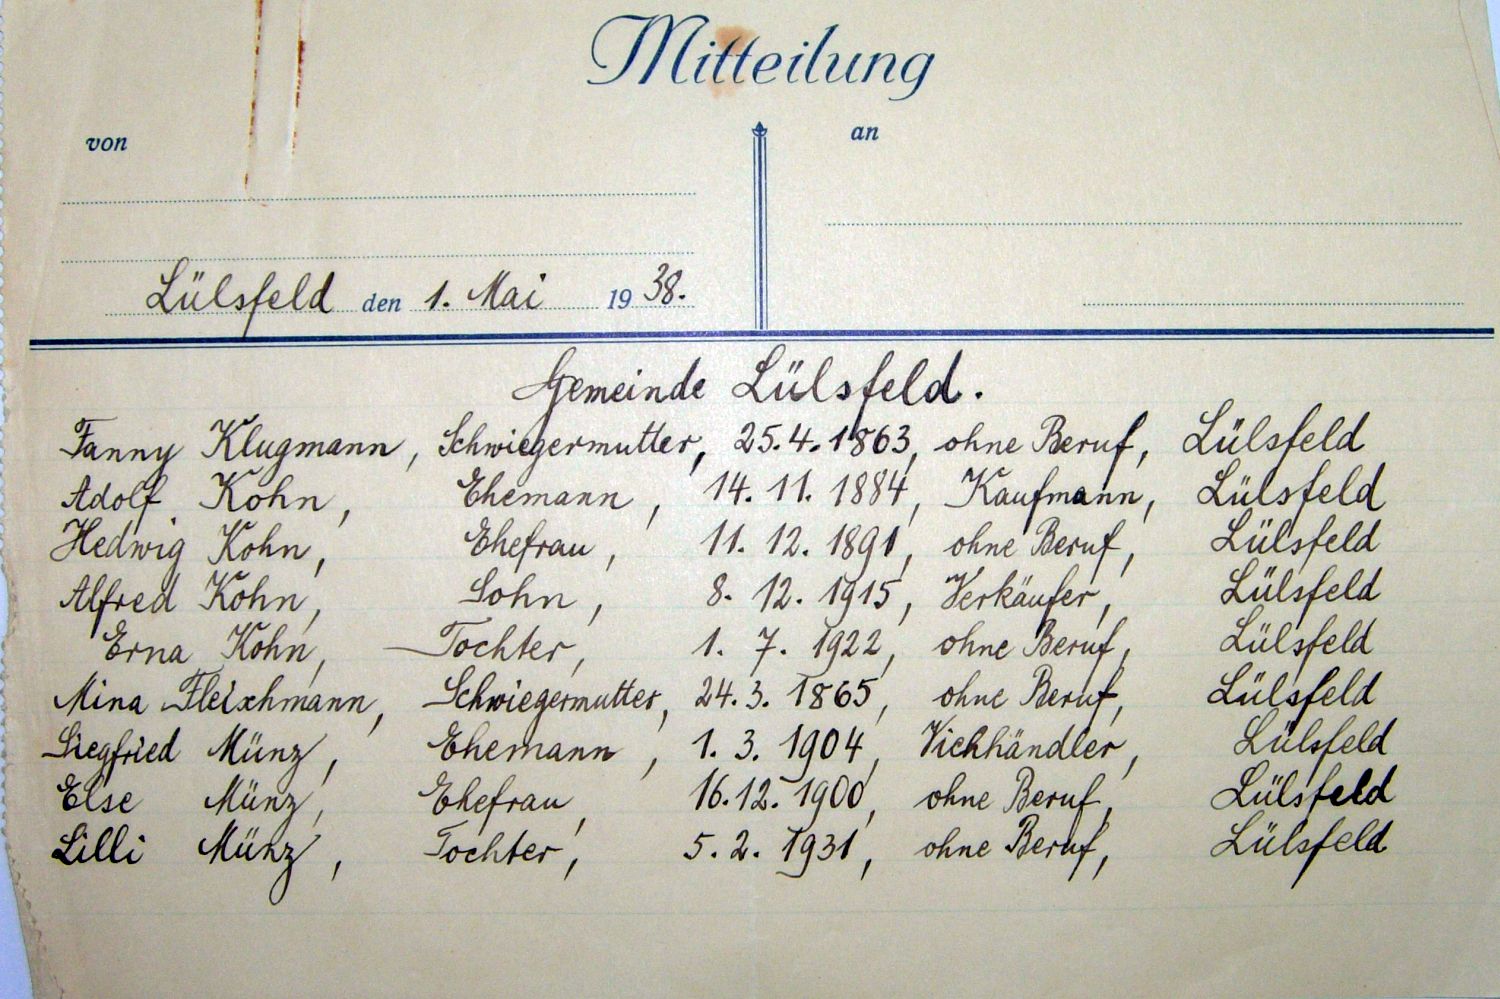 Mitteilung
von
an
Lülsfeld den 1. Mai 1938.
Gemeinde Lülsfeld.
Fanny Klugmann, Schwiegermutter, 25.4.1863, ohne Beruf, Lülsfeld
Adolf Kohn, Ehemann, 14.11.1884, Kaufmann, Lülsfeld
Hedwig Kohn, Ehefrau, 11.12.1891, ohne Beruf, Lülsfeld
Alfred Kohn, Sohn, 8.12.1915, Verkäufer, Lülsfeld
Erna Kohn, Tochter, 1.7.1922, ohne Beruf, Lülsfeld
Mina Fleischmann, Schwiegermutter, 24.3.1865, ohne Beruf, Lülsfeld
Siegfried Münz, Ehemann, 1.3.1904, Viehhändler, Lülsfeld
Else Münz, Ehefrau, 16.12.1900, ohne Beruf, Lülsfeld
Lilli Münz, Tochter, 5.2.1931, ohne Beruf, Lülsfeld